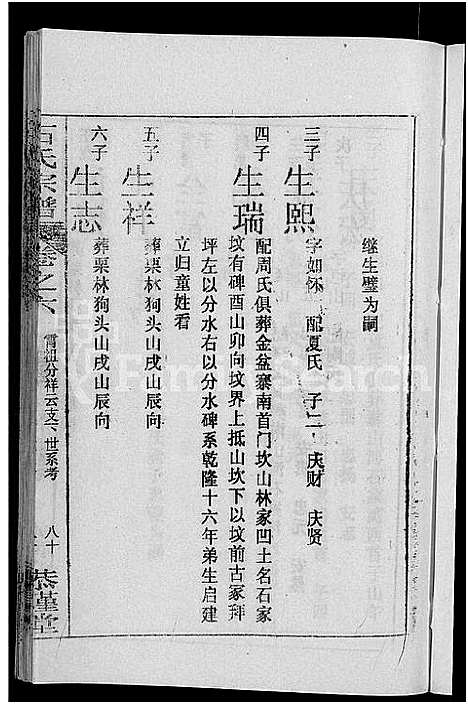 继生璧为嗣
三子
生熙
字如怀 配夏氏 子二 庆财 庆贤
四子
生瑞
配周氏俱葬金盆寨南首门坎山林家凹土名石家
坟有碑酉山卯向坟界上抵山坎下以坟前古冢拜
坪左以分水右以分水碑系乾隆十六年弟生启建
立归童姓看
五子
生祥
葬栗林狗头山戌山辰向
六子
生志
葬栗林狗头山戌山辰向
石氏宗譜 卷之六 霄祖分祥云支下世系考 八十 恭谨堂